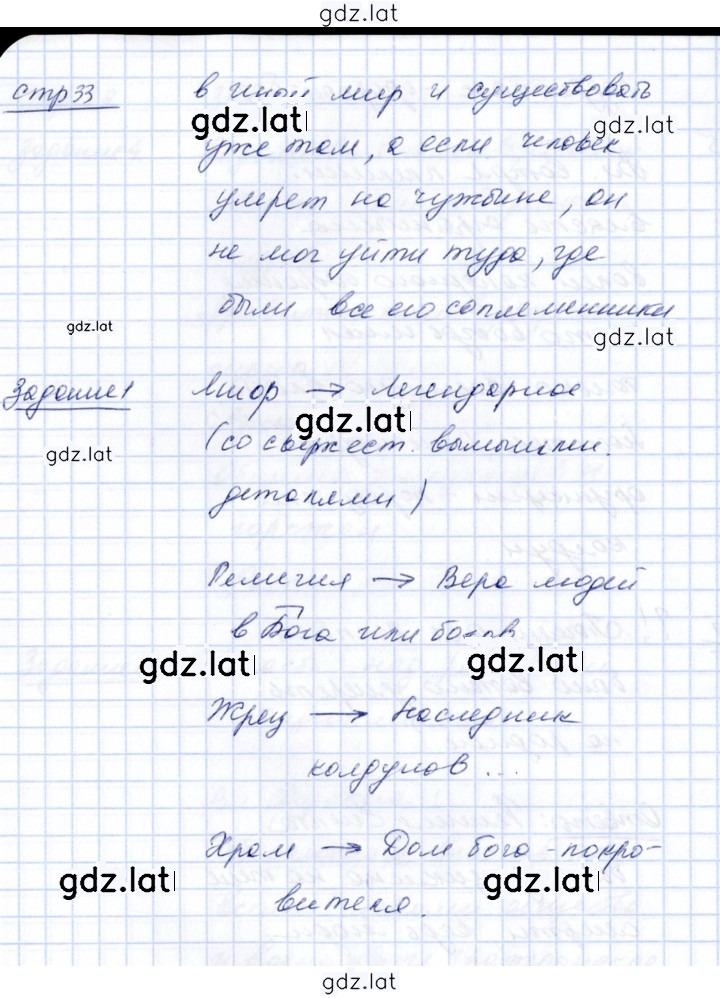 gdz.lat
стр 33
в иной мир и существовать
gdz.lat
gdz.lat
уже там, а если человек
умрет на чужбине, он
не мог уйти туда, где
были все его соплеменники
gdz.lat
gdz.lat
Задание 1
→ Легендарное
gdz.lat
gdz.lat
(со сверхест. вымышлен.
деталями)
Религия → Вера людей
в Бога или богов
gdz.lat
gdz.lat
Жрец → Наследник
колдунов...
Храм → Дом бога-покро-
gdz.lat
gdz.lat
вителя.
gdz.lat